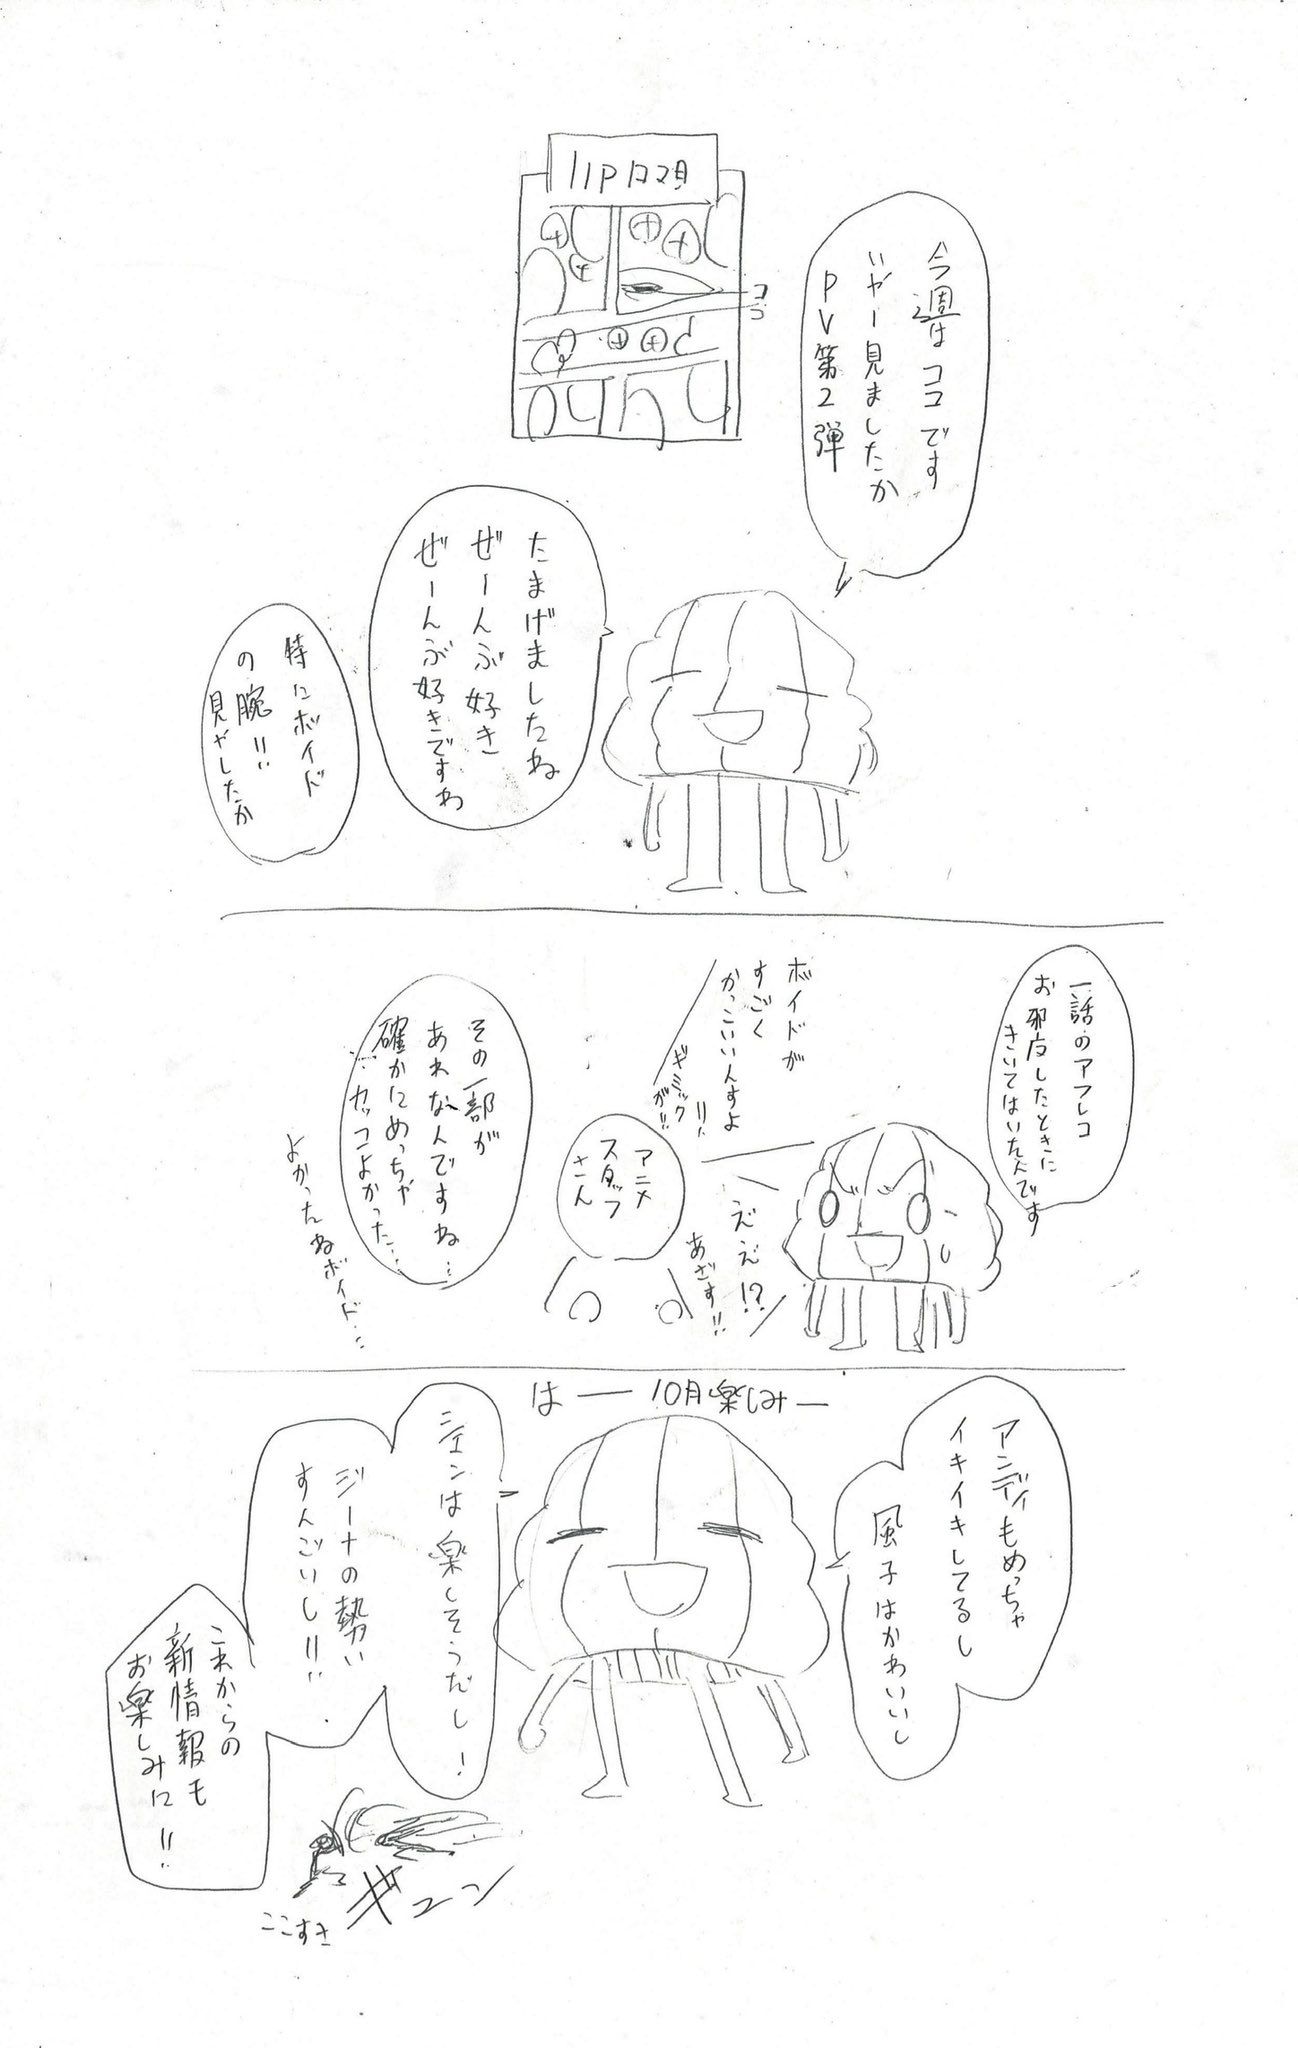 11P目
ココ
今週はココです
いやー見ましたか
PV第2弾
たまげましたね
ぜーんぶ好き
ぜーんぶ好きですわ
特にボイド
の腕!!
見やしたか
一話のアフレコ
お邪魔したときに
きいてはいたんです
ボイドが
すごく
かっこいいんすよ
!!
ギミック
が!!
アニメ
スタッフ
さん
ええ!?
あざす!!
その一部が
あれなんですね…
確かにめっちゃ
…カッコよかった…
よかったねボイド…
はー10月楽しみー
アンディもめっちゃ
イキイキしてるし
風子はかわいいし
シェンは楽しそうだし!
ジーナの勢い
すんごいし!!
これからの
新情報も
お楽しみに!!
ギューン
ここすき